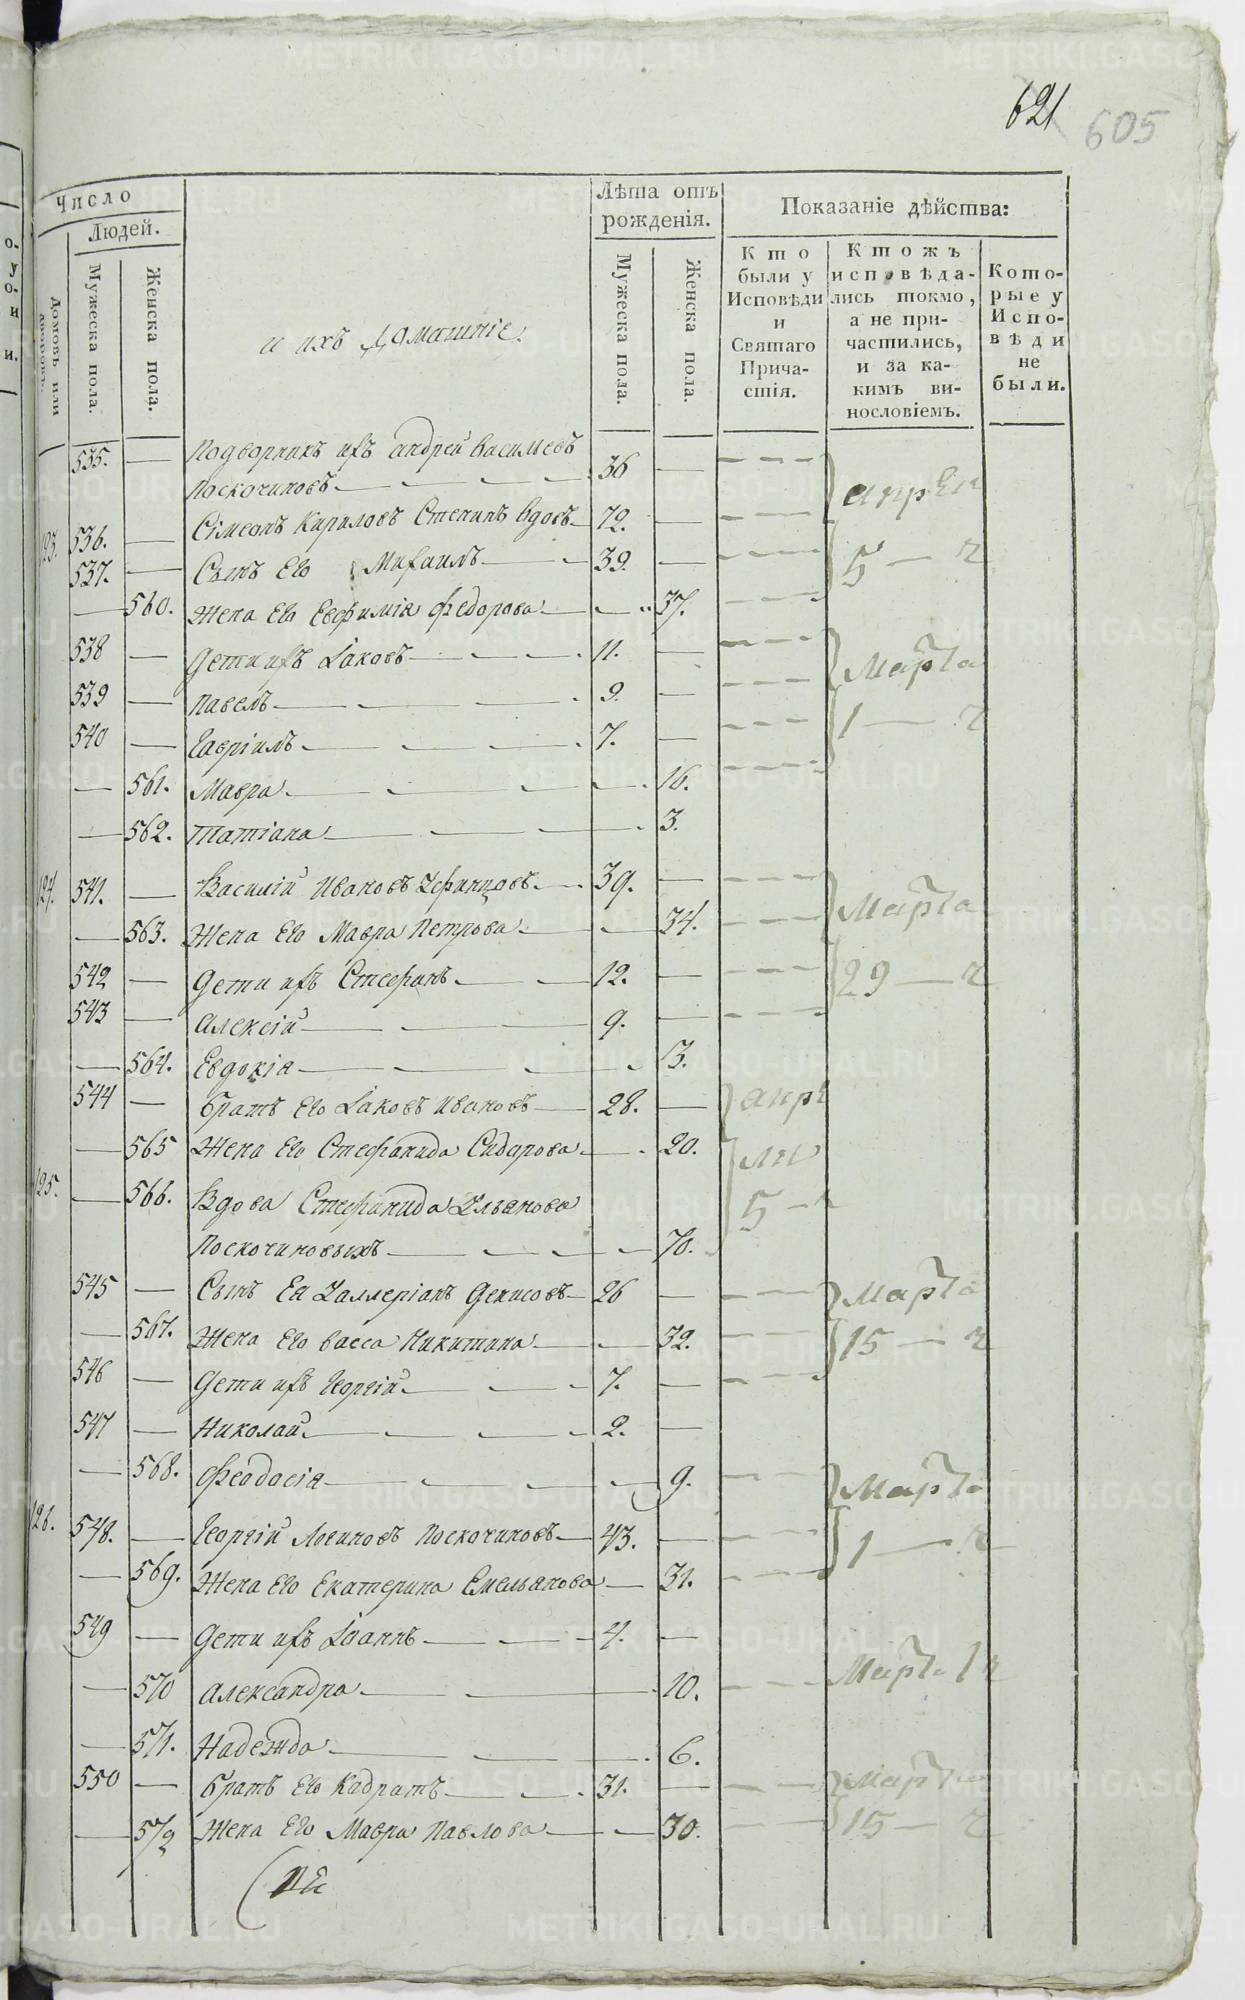 621 605
Число
Людей.
Домовъ или
Мужеска пола.
Женска пола.
и ихъ домашніе.
Лѣта отъ
рожденія.
Мужеска пола.
Женска пола.
Показаніе дѣйства:
Кто
были у
Исповѣди
и
Святаго
Прича-
стія.
Ктожъ
исповѣда-
лись токмо,
а не при-
частились,
и за ка-
кимъ ви-
нословіемъ.
Кото-
рые у
Испо-
вѣди
не
были.
535. — Подворникъ ихъ андрей Василіевъ
Поскочиновъ — 36 —
апрѣля
123. 536. — Сімеонъ Кириловъ Степинъ вдовъ — 72. —
537. — Сынъ Его Михаилъ — 39. —
5 — ч
— 560. Жена Его Евфимія Федорова — 37.
538 — Дети ихъ Іаковъ — 11. —
Марта
539 — Павелъ — 9. —
540 — Гавріилъ — 7. —
1 — ч
— 561. Мавра — 16.
— 562. Татіана — 3.
124. 541. — Василій Ивановъ Уфинцовъ — 39. —
Марта
— 563. Жена Его Мавра Петрова — 34.
542 — Дети ихъ Стефанъ — 12. —
29 — ч
543 — Алексій — 9. —
— 564. Евдокія — 3.
544 — Братъ Его Іаковъ Ивановъ — 28. —
апрѣ
— 565 Жена Его Стефанида Сидорова — 20.
ля
125. — 566. Вдова Стефанида Ульянова
5 — ч
Поскочиновыхъ — 70.
545 — Сынъ Ея Валлеріанъ Денисовъ — 26 —
Марта
— 567. Жена Его Васса Никитина — 32.
15 — ч
546 — Дети ихъ Георгій — 7. —
547 — Николай — 2. —
— 568. Феодосія — 9.
Марта
126. 548. — Георгій Логиновъ Поскочиновъ — 43. —
1 — ч
— 569. Жена Его Екатерина Емельянова — 31.
549 — Дети ихъ Іоаннъ — 4. —
— 570 Александра — 10.
Марта 1 ч
— 571. Надежда — 6.
550 — Братъ Его Кодратъ — 31. —
Марта
— 572 Жена Его Мавра Павлова — 30.
15 — ч